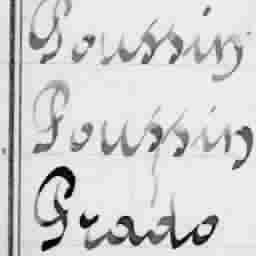 Poussin
Pouſsin
Prado